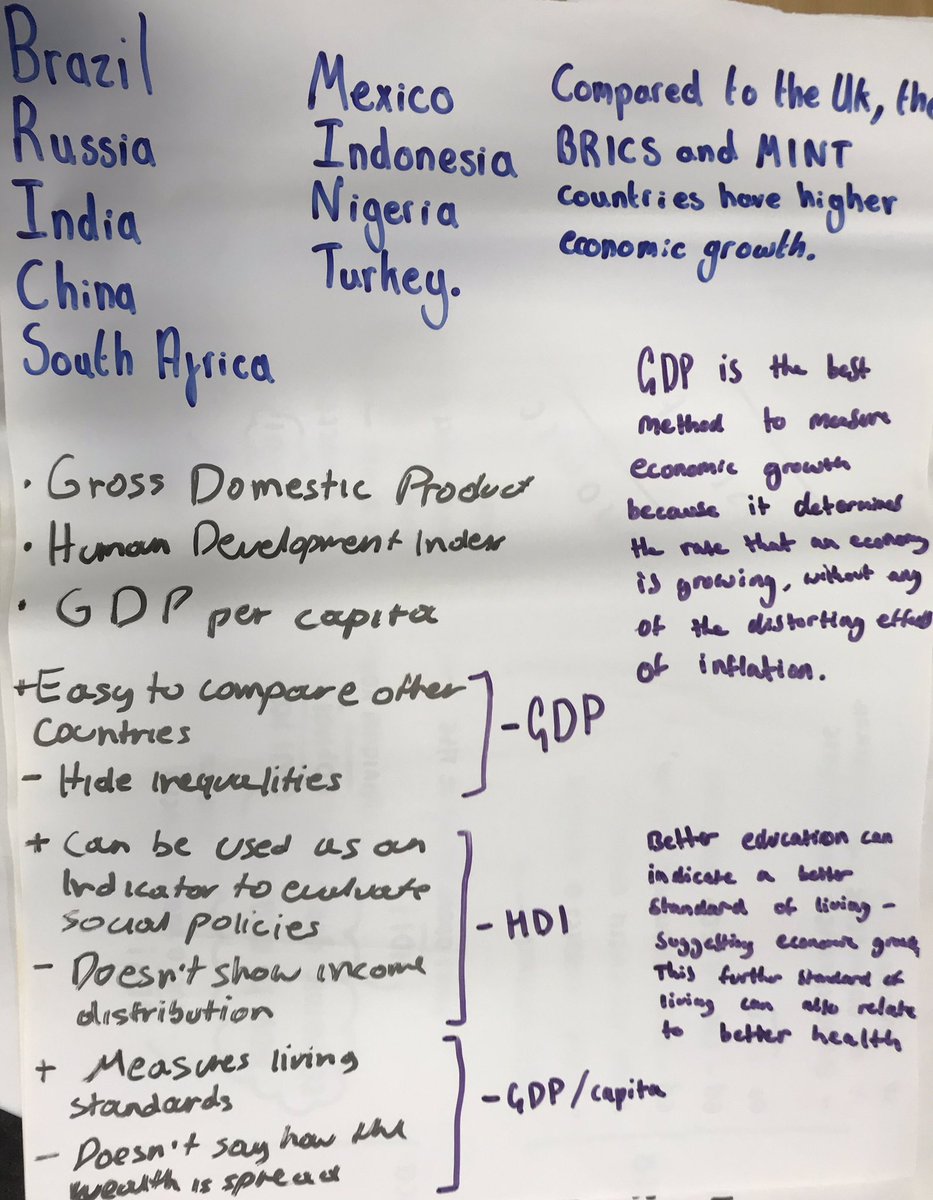 Brazil
Russia
India
China
South Africa
Mexico
Indonesia
Nigeria
Turkey.
Compared to the Uk, the
BRICS and MINT
countries have higher
economic growth.
GDP is the best
method to measure
economic growth
because it determines
the rate that an economy
is growing, without any
of the distorting effects
of inflation.
• Gross Domestic Product
• Human Development Index
• GDP per capita
+ Easy to compare other
Countries
- Hide inequalities
- GDP
+ Can be used as an
indicator to evaluate
social policies
- Doesn't show income
distribution
- HDI
Better education can
indicate a better
standard of living -
suggesting economic
This further standard of
living can also relate
to better health
+ Measures living
standards
- Doesn't say how the
wealth is spread
- GDP/capita